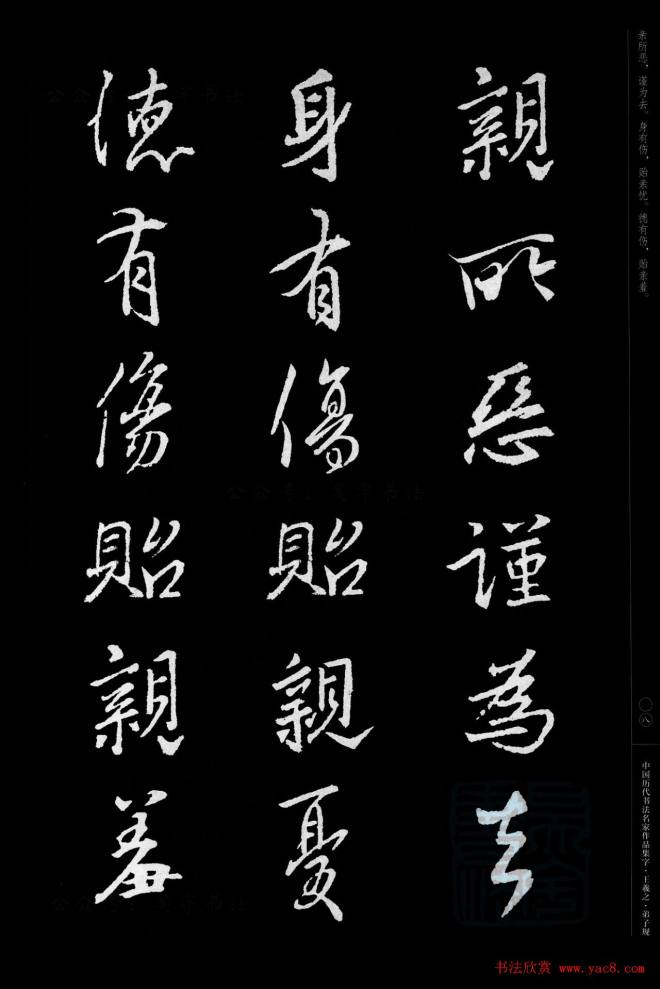 親所惡謹為去
身有傷貽親憂
德有傷貽親羞
亲所恶，谨为去。身有伤，贻亲忧。德有伤，贻亲羞。
〇八
中国历代书法名家作品集字·王羲之·弟子规
书法欣赏 www.yac8.com